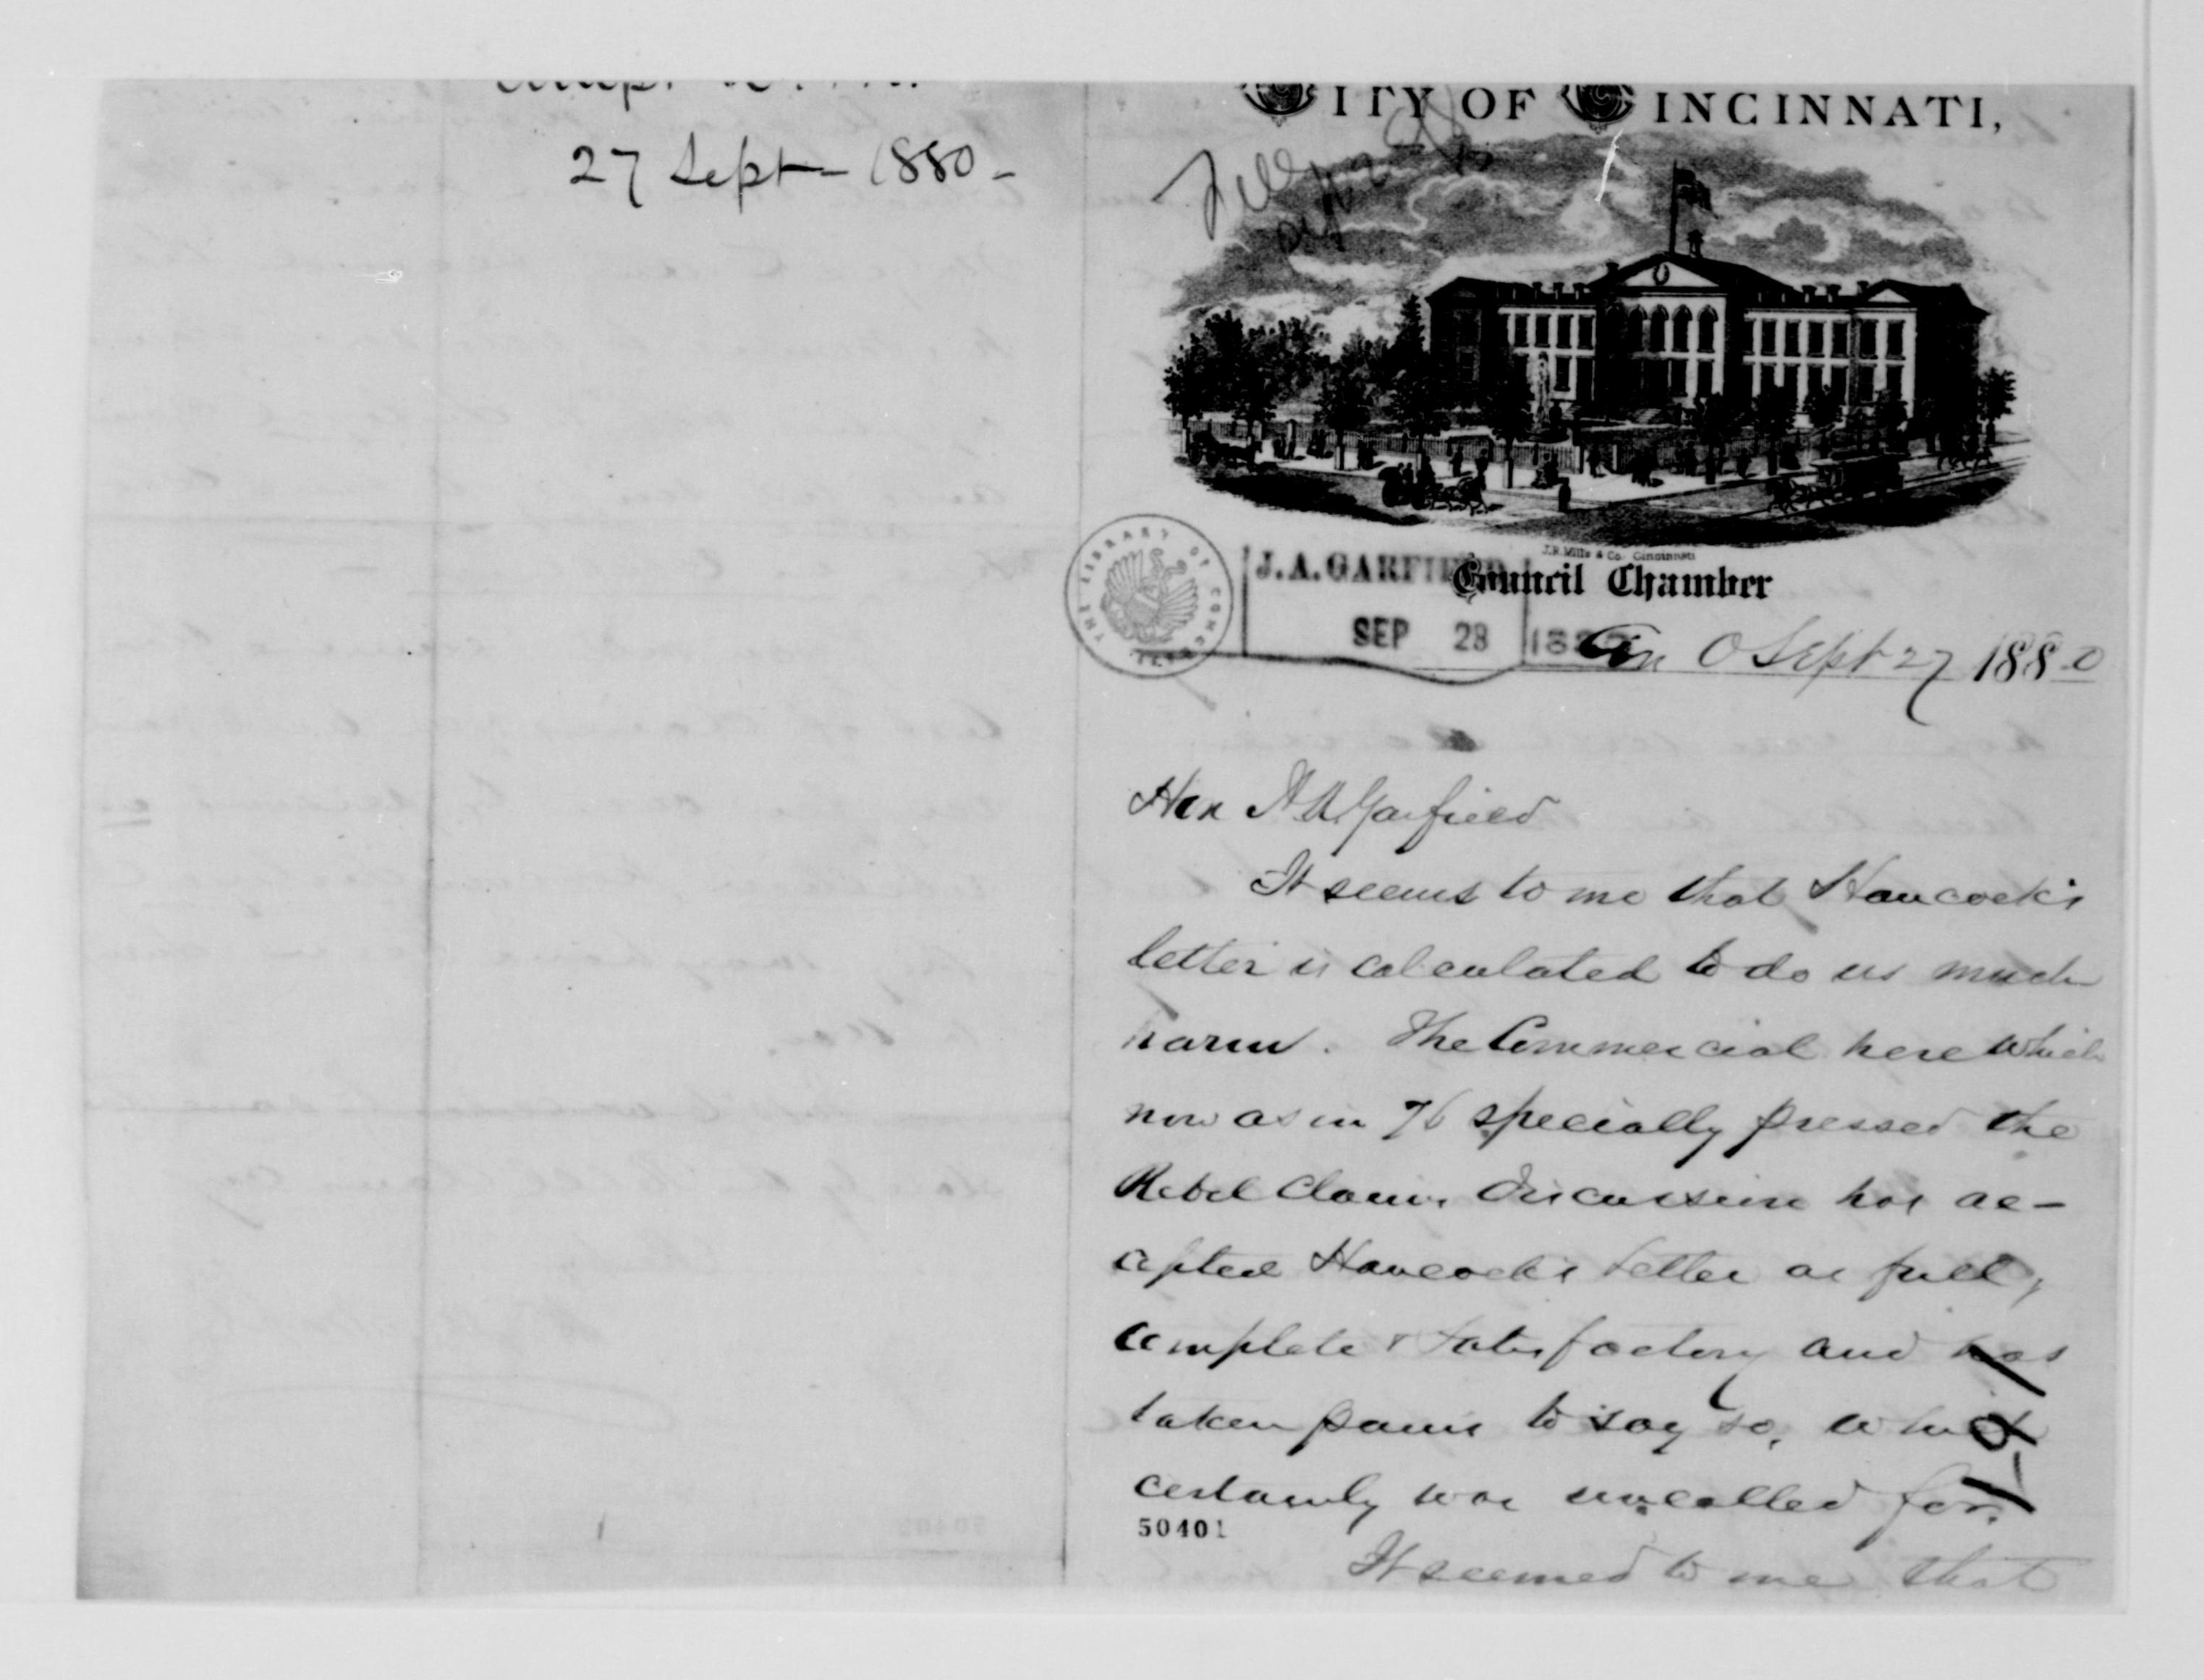 27 Sept - 1880 -
CITY OF CINCINNATI,
J.R. Mills & Co. Cincinnati
THE LIBRARY OF CONGRESS
J. A. GARFIELD
Council Chamber
SEP 28 1880
Cin O Sept 27 1880
Hon J A Garfield
It seems to me that Hancock's
letter is calculated to do us much
harm. The Commercial here which
now as in 76 specially pressed the
Rebel Claims discussion has ac-
cepted Hancock's letter as full,
complete & satisfactory and has
taken pains to say so, which
certainly was uncalled for.
50401
It seemed to me that